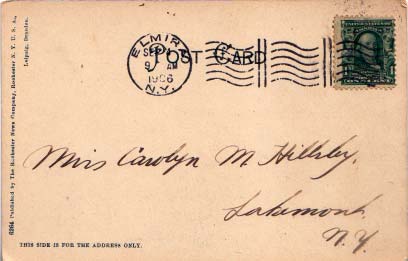 ELMIRA
SEP
9 AM
1906
N.Y.
POST CARD
Miss Carolyn M. Hillsley.
Lakemont
N.Y.
THIS SIDE IS FOR THE ADDRESS ONLY.
6264 Published by The Rochester News Company, Rochester N. Y. U. S. A.,
Leipzig, Dresden.